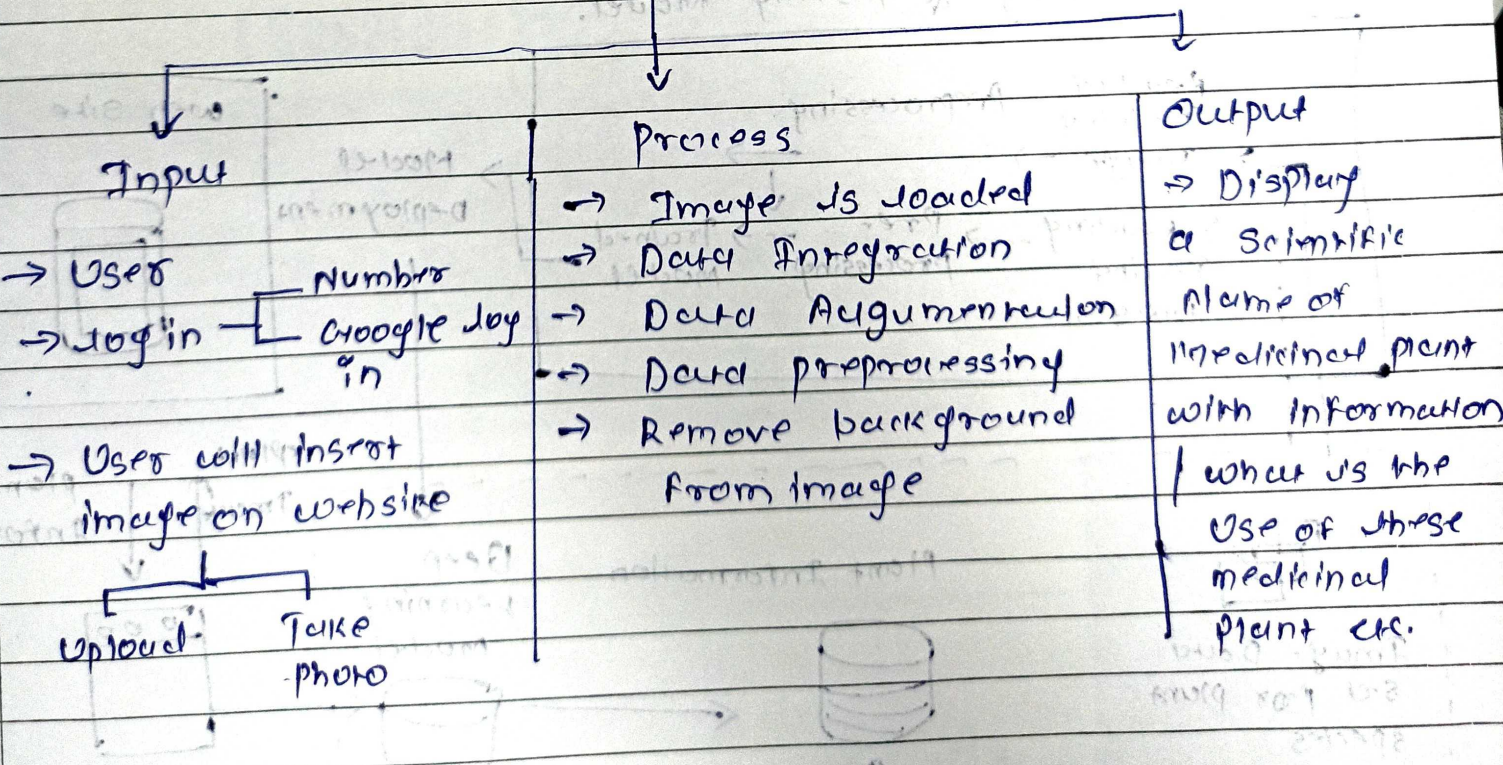 Input
→ User
→ login
Number
Google log
in
→ User will insert
image on website
Upload
Take
photo
Process
→ Image is loaded
→ Data Integration
→ Data Augumentation
→ Data preprocessing
→ Remove background
from image
Output
→ Display
a Scientific
Name of
Medicinal plant
with information
what is the
Use of these
medicinal
Plant etc.